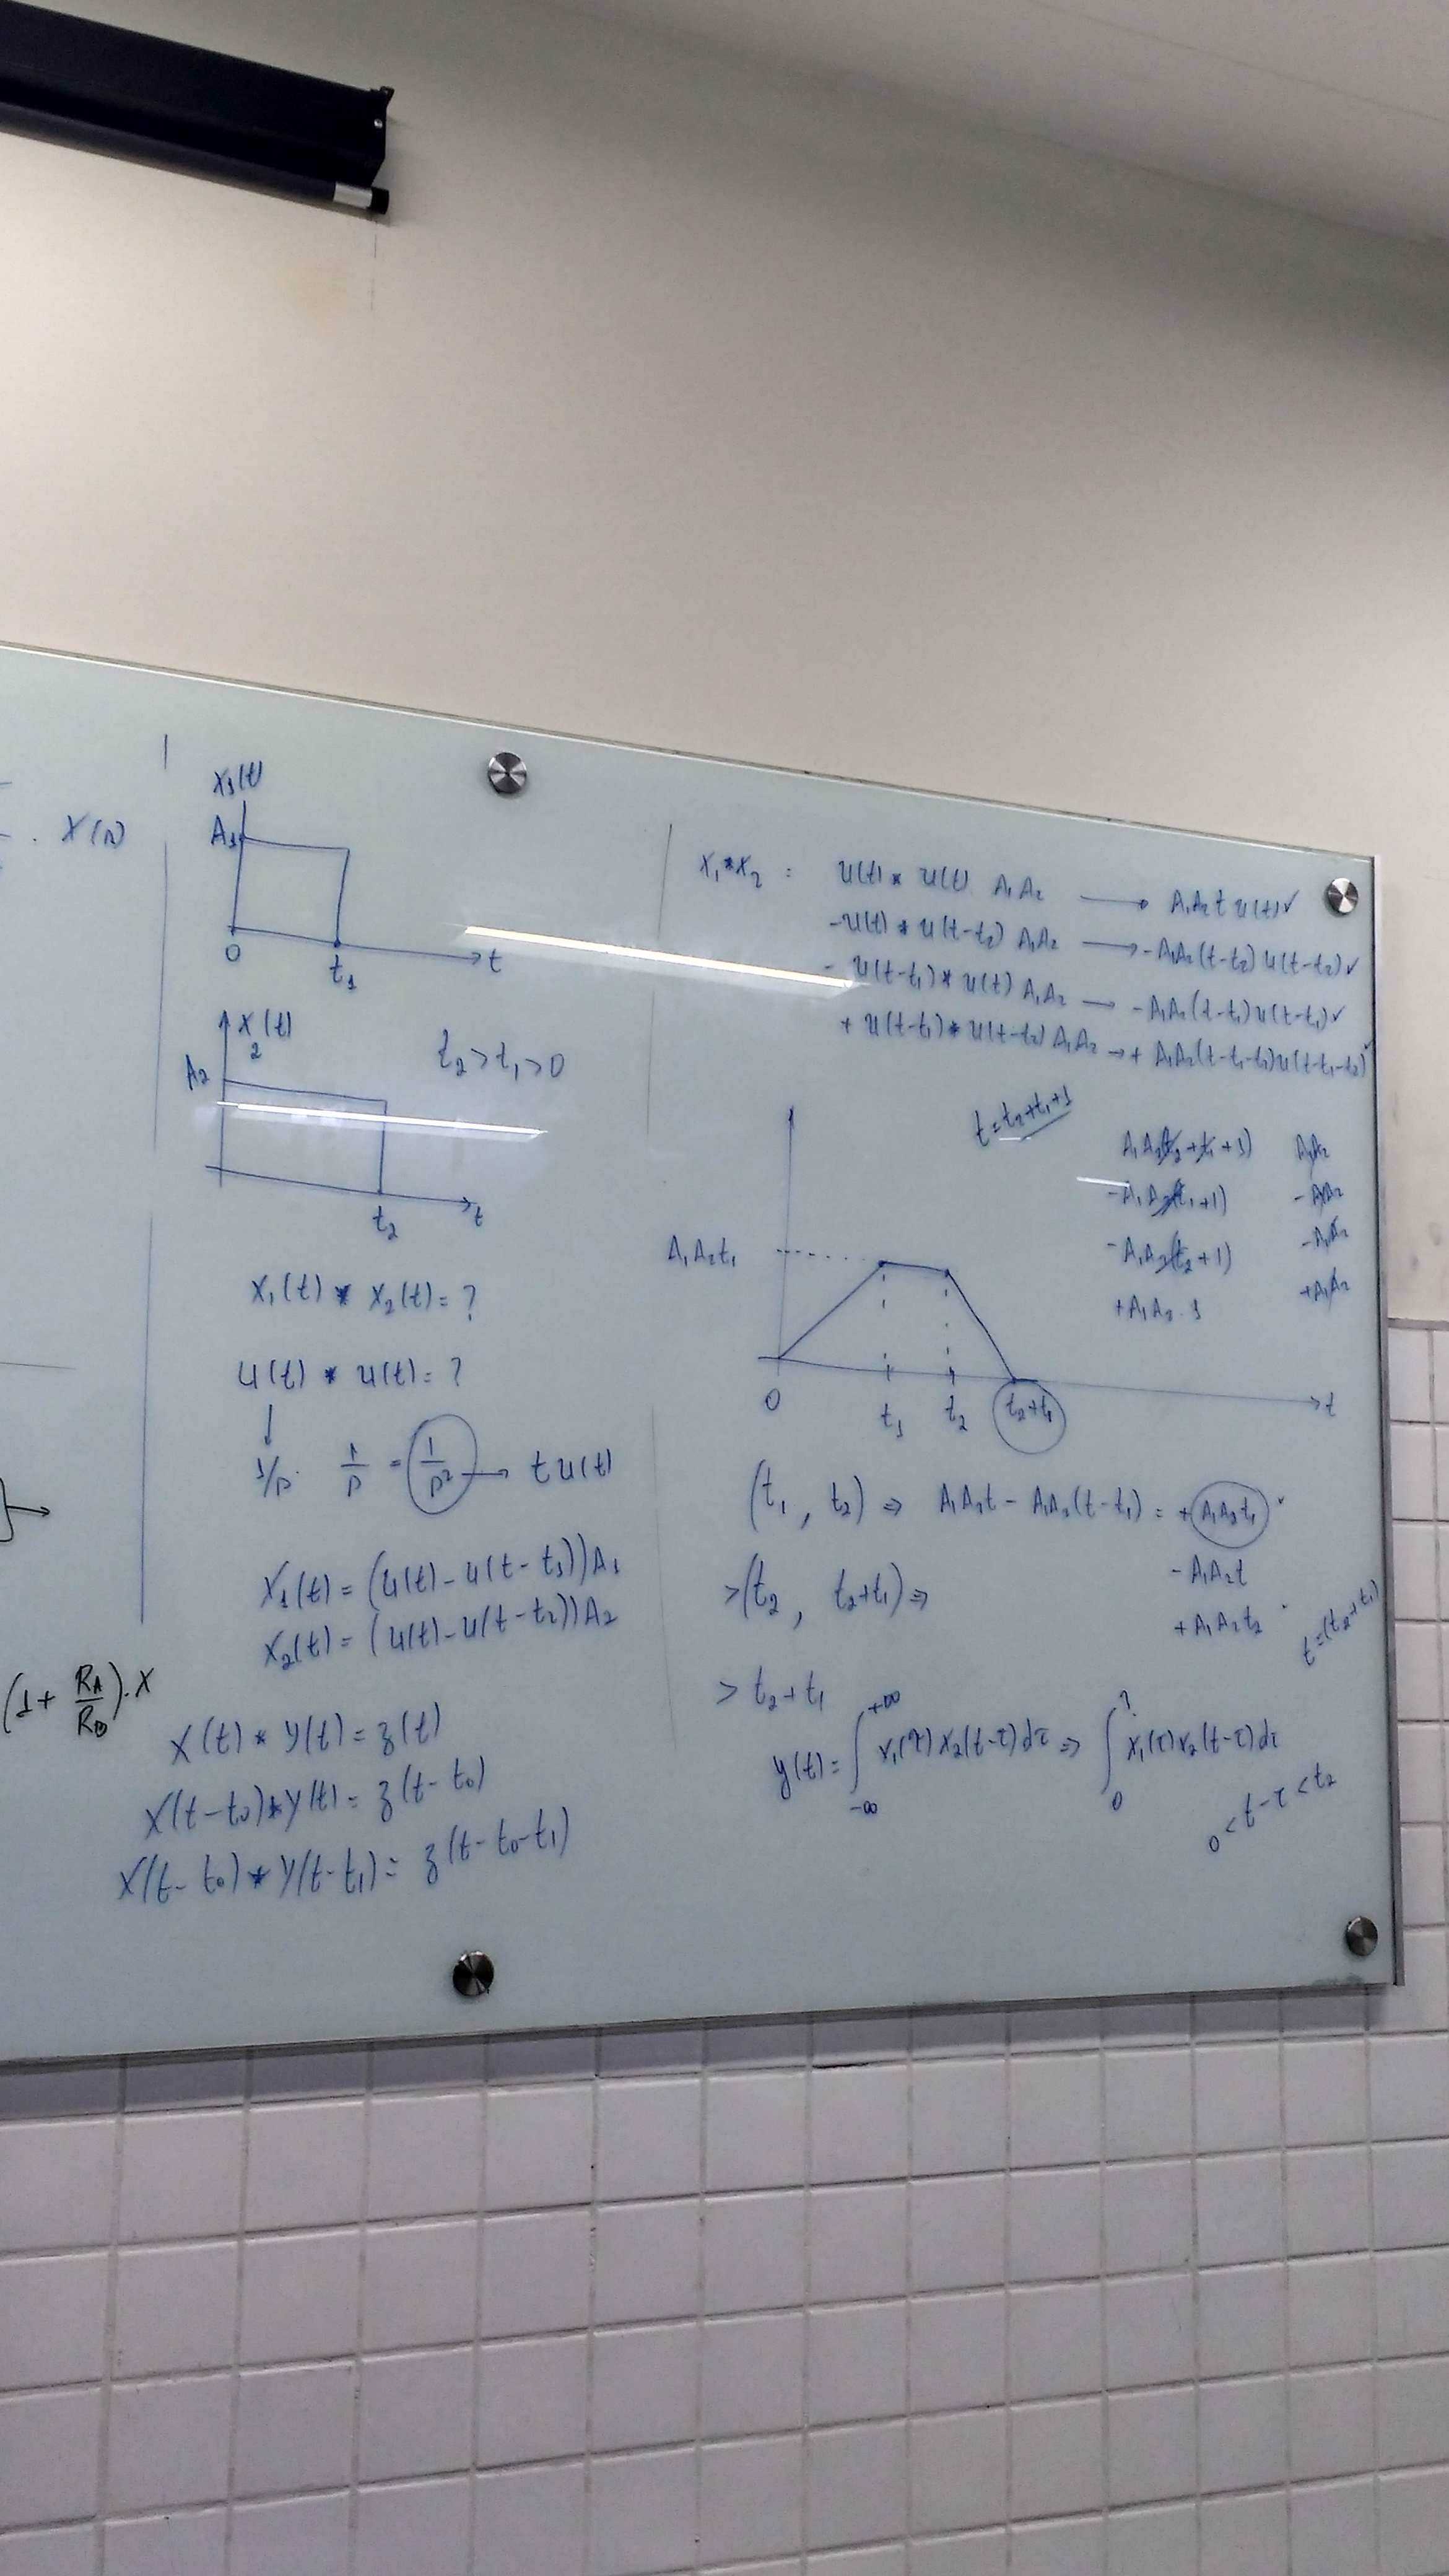 . X(s)
x1(t)
A1
0
t1
t
x2(t)
A2
t2 > t1 > 0
t2
t
x1(t) * x2(t) = ?
u(t) * u(t) = ?
↓
1/s . 1/s = 1/s² → t u(t)
x1(t) = (u(t) - u(t - t1)) A1
x2(t) = (u(t) - u(t - t2)) A2
(1 + RA/RB) . X
x(t) * y(t) = z(t)
x(t - t0) * y(t) = z(t - t0)
x(t - t0) * y(t - t1) = z(t - t0 - t1)
x1 * x2 : u(t) * u(t) A1A2 → A1A2 t u(t) ✓
- u(t) * u(t-t2) A1A2 → - A1A2 (t-t2) u(t-t2) ✓
- u(t-t1) * u(t) A1A2 → - A1A2 (t-t1) u(t-t1) ✓
+ u(t-t1) * u(t-t2) A1A2 → + A1A2 (t-t1-t2) u(t-t1-t2) ✓
t = t2+t1+1
A1A2(t2 + t1 + 1) A1A2
- A1A2(t1+1) - A1A2
- A1A2(t2+1) - A1A2
+ A1A2 . 1 + A1A2
A1A2t1
0
t1
t2
t2+t1
t
(t1 , t2) ⇒ A1A2t - A1A2(t - t1) = + A1A2t1 ✓
- A1A2t
>(t2 , t2+t1) ⇒
+ A1A2t2
t = (t2+t1)
> t2 + t1
y(t) = ∫_{-∞}^{+∞} x1(τ) x2(t-τ) dτ ⇒ ∫_0^? x1(τ) x2(t-τ) dτ
0 < t-τ < t2